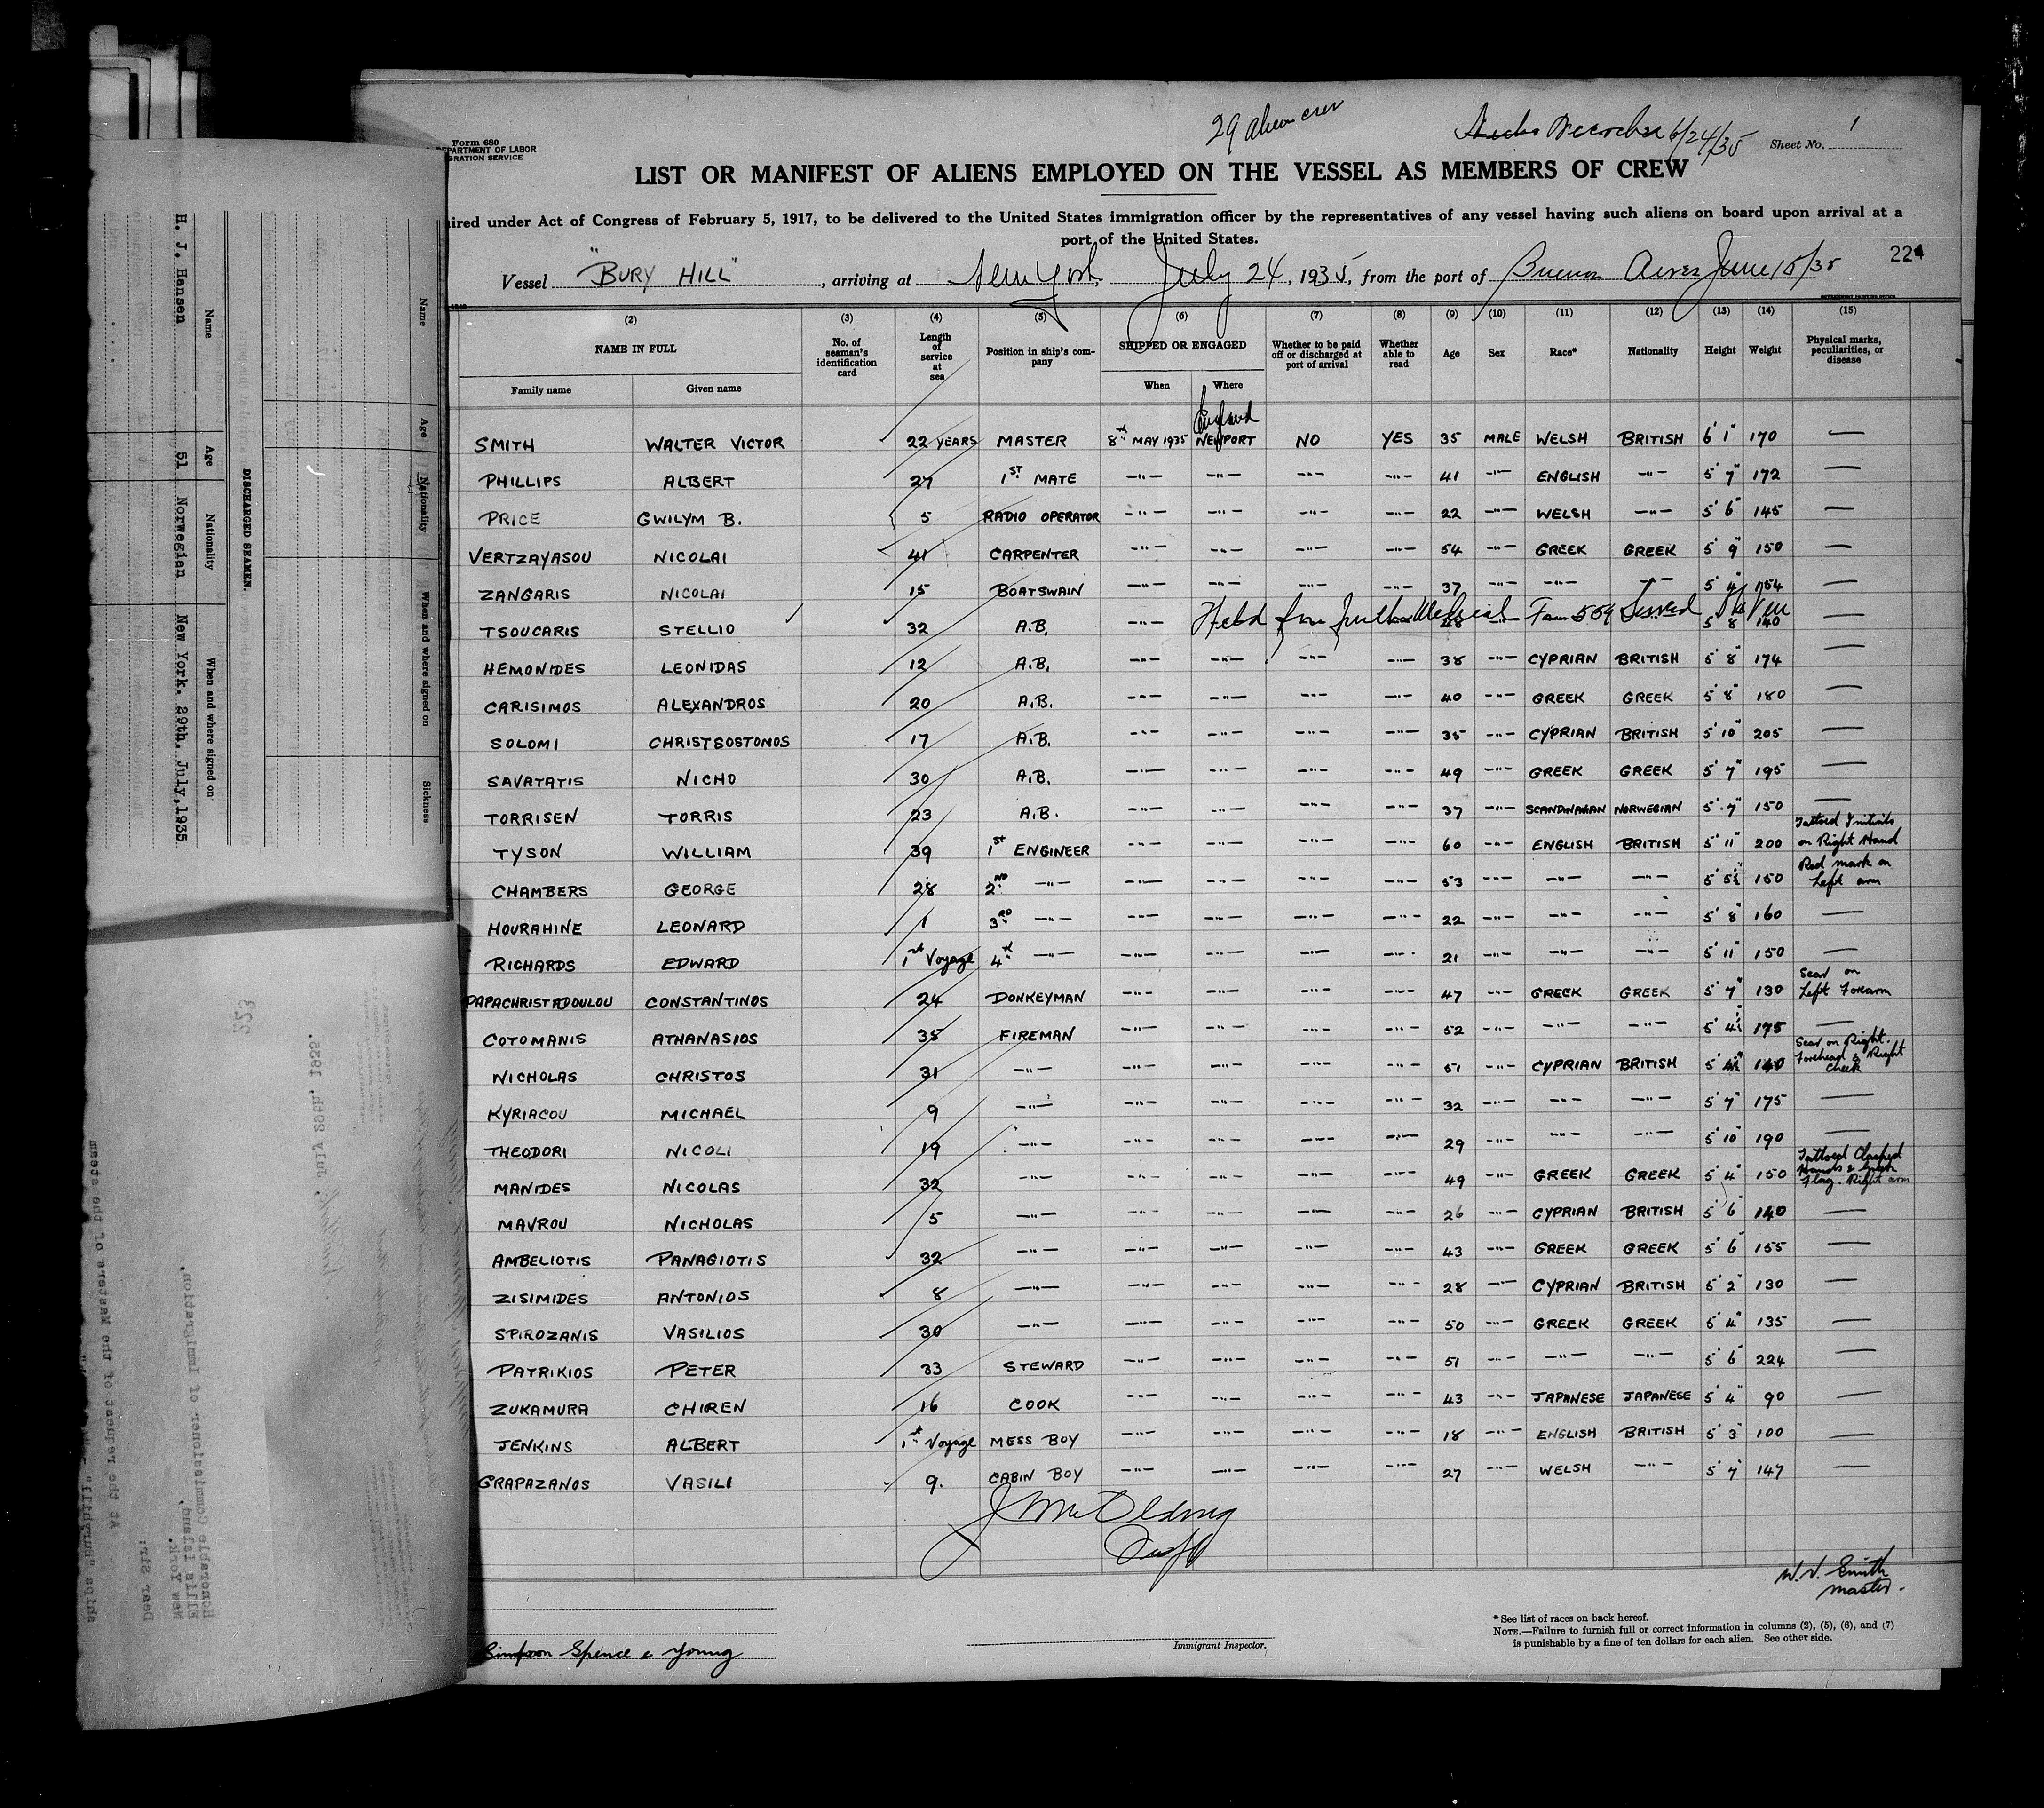 29 alien crew
6/24/35
Sheet No. 1
Form 680
DEPARTMENT OF LABOR
GRATION SERVICE
LIST OR MANIFEST OF ALIENS EMPLOYED ON THE VESSEL AS MEMBERS OF CREW
ired under Act of Congress of February 5, 1917, to be delivered to the United States immigration officer by the representatives of any vessel having such aliens on board upon arrival at a
port of the United States.
224
Vessel "BURY HILL", arriving at New York, July 24, 1935, from the port of Buenos Aires June 15/35
(2) (3) (4) (5) (6) (7) (8) (9) (10) (11) (12) (13) (14) (15)
NAME IN FULL No. of seaman's identification card Length of service at sea Position in ship's company SHIPPED OR ENGAGED Whether to be paid off or discharged at port of arrival Whether able to read Age Sex Race* Nationality Height Weight Physical marks, peculiarities, or disease
Family name Given name When Where
England
SMITH WALTER VICTOR 22 YEARS MASTER 8th MAY 1935 NEWPORT NO YES 35 MALE WELSH BRITISH 6' 1" 170 —
PHILLIPS ALBERT 27 1ST MATE -"- -"- -"- -"- 41 -"- ENGLISH -"- 5' 7" 172 —
PRICE GWILYM B. 5 RADIO OPERATOR -"- -"- -"- -"- 22 -"- WELSH -"- 5' 6" 145 —
VERTZAYASOU NICOLAI 41 CARPENTER -"- -"- -"- -"- 54 -"- GREEK GREEK 5' 9" 150 —
ZANGARIS NICOLAI 15 BOATSWAIN -"- -"- -"- -"- 37 -"- -"- -"- 5' 154 —
TSOUCARIS STELLIO 32 A.B. -"- Held for further Medical Form 509 Served 5' 8" 140 —
HEMONIDES LEONIDAS 12 A.B. -"- -"- -"- -"- 38 -"- CYPRIAN BRITISH 5' 8" 174 —
CARISIMOS ALEXANDROS 20 A.B. -"- -"- -"- -"- 40 -"- GREEK GREEK 5' 8" 180 —
SOLOMI CHRISTSOSTOMOS 17 A.B. -"- -"- -"- -"- 35 -"- CYPRIAN BRITISH 5' 10" 205 —
SAVATATIS NICHO 30 A.B. -"- -"- -"- -"- 49 -"- GREEK GREEK 5' 7" 195 —
TORRISEN TORRIS 23 A.B. -"- -"- -"- -"- 37 -"- SCANDINAVIAN NORWEGIAN 5' 7" 150 —
TYSON WILLIAM 39 1ST ENGINEER -"- -"- -"- -"- 60 -"- ENGLISH BRITISH 5' 11" 200 Tattoed Initials on Right Hand
CHAMBERS GEORGE 28 2ND -"- -"- -"- -"- -"- 53 -"- -"- -"- 5' 5½" 150 Red mark on Left arm
HOURAHINE LEONARD 1 3RD -"- -"- -"- -"- -"- 22 -"- -"- -"- 5' 8" 160 —
RICHARDS EDWARD 1st Voyage 4th -"- -"- -"- -"- -"- 21 -"- -"- -"- 5' 11" 150 —
PAPACHRISTADOULOU CONSTANTINOS 24 DONKEYMAN -"- -"- -"- -"- 47 -"- GREEK GREEK 5' 7" 130 Scar on Left Forearm
COTOMANIS ATHANASIOS 35 FIREMAN -"- -"- -"- -"- 52 -"- -"- -"- 5' 4½" 175 —
NICHOLAS CHRISTOS 31 -"- -"- -"- -"- -"- 51 -"- CYPRIAN BRITISH 5' 140 Scar on Right Forehead & Right Cheek
KYRIACOU MICHAEL 9 -"- -"- -"- -"- -"- 32 -"- -"- -"- 5' 7" 175 —
THEODORI NICOLI 19 -"- -"- -"- -"- -"- 29 -"- -"- -"- 5' 10" 190 —
MANIDES NICOLAS 32 -"- -"- -"- -"- -"- 49 -"- GREEK GREEK 5' 4" 150 Tattoed Clasped Hands & Greek Flag. Right arm
MAVROU NICHOLAS 5 -"- -"- -"- -"- -"- 26 -"- CYPRIAN BRITISH 5' 6" 140 —
AMBELIOTIS PANAGIOTIS 32 -"- -"- -"- -"- -"- 43 -"- GREEK GREEK 5' 6" 155 —
ZISIMIDES ANTONIOS 8 -"- -"- -"- -"- -"- 28 -"- CYPRIAN BRITISH 5' 2" 130 —
SPIROZANIS VASILIOS 30 -"- -"- -"- -"- -"- 50 -"- GREEK GREEK 5' 4" 135 —
PATRIKIOS PETER 33 STEWARD -"- -"- -"- -"- 51 -"- -"- -"- 5' 6" 224 —
ZUKAMURA CHIREN 16 COOK -"- -"- -"- -"- 43 -"- JAPANESE JAPANESE 5' 4" 90 —
JENKINS ALBERT 1st Voyage MESS BOY -"- -"- -"- -"- 18 -"- ENGLISH BRITISH 5' 3" 100 —
GRAPAZANOS VASILI 9. CABIN BOY -"- -"- -"- -"- 27 -"- WELSH -"- 5' 7" 147 —
W. V. Smith
master.
Simpson Spence & Young
Immigrant Inspector.
* See list of races on back hereof.
NOTE.—Failure to furnish full or correct information in columns (2), (5), (6), and (7)
is punishable by a fine of ten dollars for each alien. See other side.
Name Age Nationality When and where signed on Sickness
DISCHARGED SEAMEN.
Name Age Nationality When and where signed on
H. J. Hansen 51 Norwegian New York. 29th. July,1935
223
July 29th, 1935.
Honorable Commissioner of Immigration,
Ellis Island,
New York.
Dear Sir:
At the request of the Masters of the steam
ships "Buryhill"